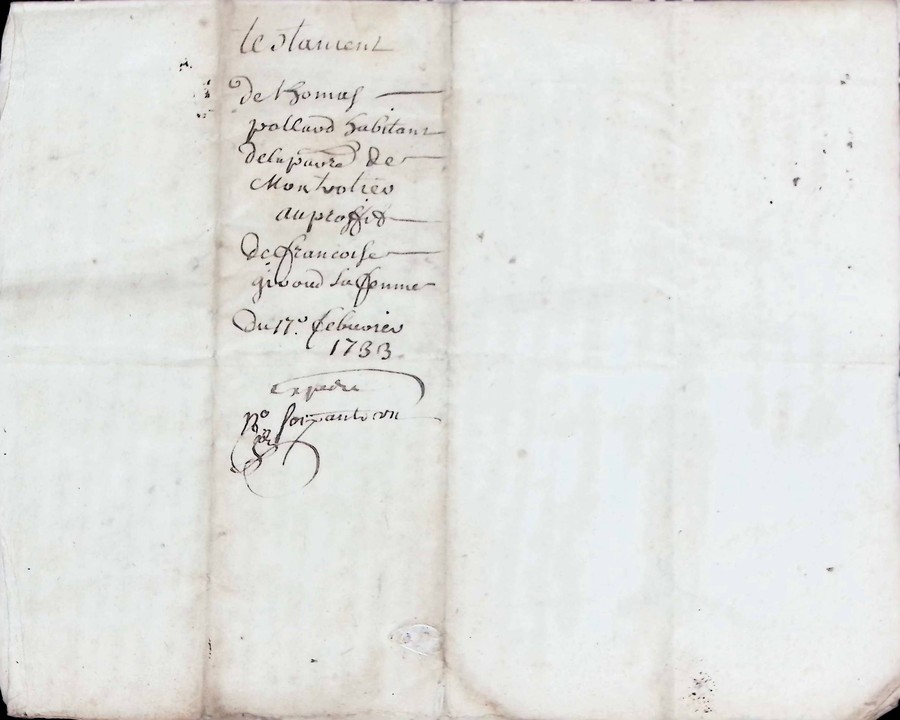 testament
de thomas
pollaud habitant
delaparre de
Montvolier
auproffit
defrancoise
giroud sa femme
Du 17e. febvrier
1733
expedie
No soixante un